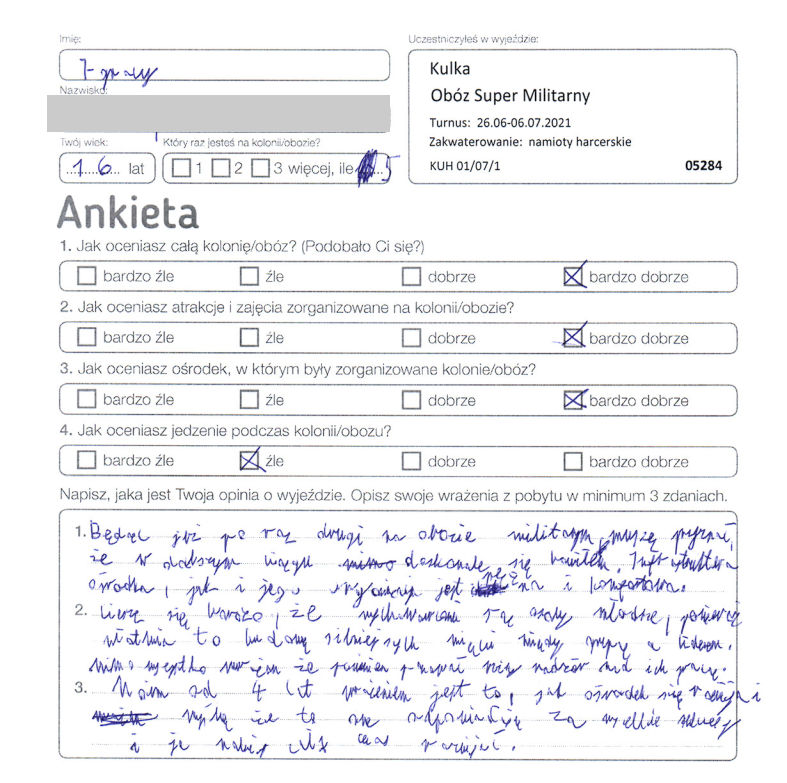 Imię:
Uczestniczyłeś w wyjeździe:
Ignacy
Kulka
Nazwisko:
Obóz Super Militarny
Turnus: 26.06-06.07.2021
Twój wiek:
Który raz jesteś na kolonii/obozie?
Zakwaterowanie: namioty harcerskie
16 lat
1 2 3 więcej, ile 5
KUH 01/07/1
05284
Ankieta
1. Jak oceniasz całą kolonię/obóz? (Podobało Ci się?)
bardzo źle źle dobrze bardzo dobrze
2. Jak oceniasz atrakcje i zajęcia zorganizowane na kolonii/obozie?
bardzo źle źle dobrze bardzo dobrze
3. Jak oceniasz ośrodek, w którym były zorganizowane kolonie/obóz?
bardzo źle źle dobrze bardzo dobrze
4. Jak oceniasz jedzenie podczas kolonii/obozu?
bardzo źle źle dobrze bardzo dobrze
Napisz, jaka jest Twoja opinia o wyjeździe. Opisz swoje wrażenia z pobytu w minimum 3 zdaniach.
1. Będąc już po raz drugi na obozie militarnym, muszę przyznać,
że w dalszym ciągu doskonale się bawiłem. Infrastruktura
ośrodka, jak i jego jest i komfortowa.
2. się bardzo, że wychowawcami są osoby młodsze, ponieważ
to buduje silniejszych więzi między grupą a liderem.
Mimo wszystko uważam że powinien nadzór nad ich pracą.
3. od 4 lat jest to, jak ośrodek się rozwija i
że to za wszelkie sukcesy
i je cały czas rozwijać.